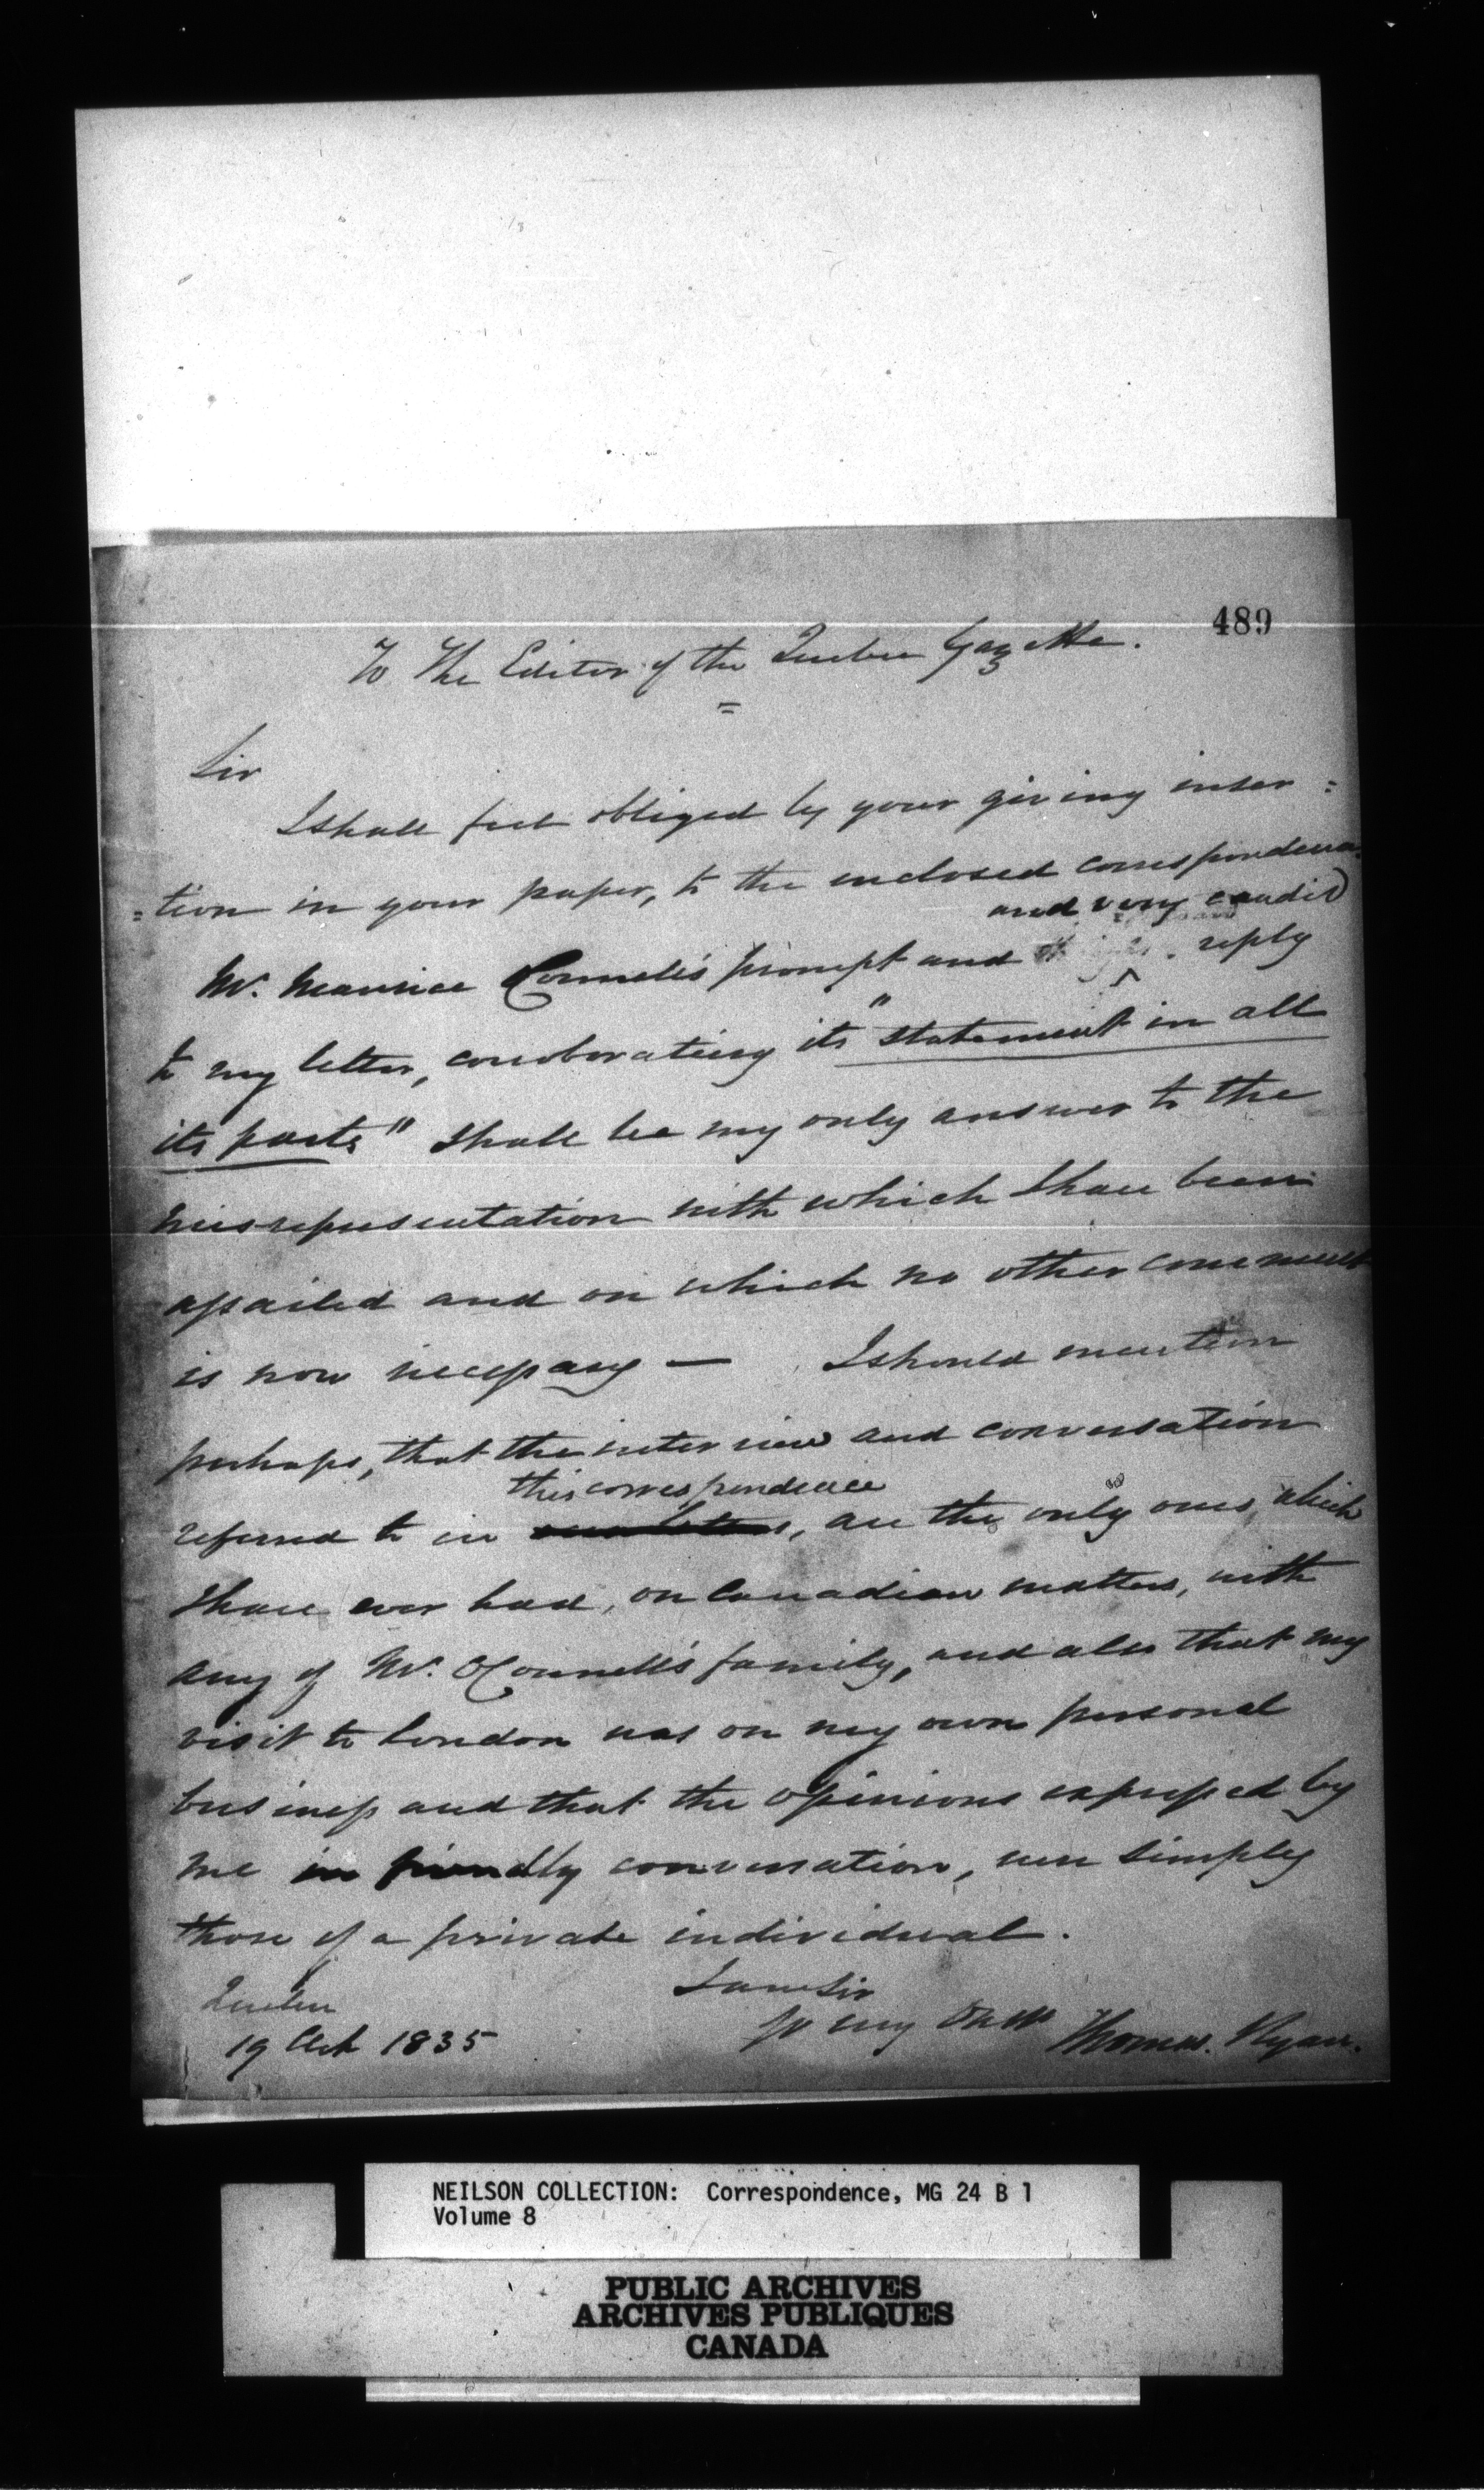 489
To The Editor of the Quebec Gazette.
=
Sir
I shall feel obliged by your giving inser=
=tion in your paper, to the inclosed correspondence.
and very candid
Mr. Maurice OConnell's prompt and reply
to my letter, corroborating its "statement in all
its parts" shall be my only answer to the
misrepresentation with which I have been
assailed and on which no other comment
is now necessary — I should mention
perhaps, that the interview and conversation
this correspondence
referred to in, are the only ones, which
I have ever had, on Canadian matters, with
any of Mr. OConnell's family, and also that my
visit to London was on my own personal
business and that the opinions expressed by
me in friendly conversation, were simply
those of a private individual.
I am Sir
Quebec
Yr
Thomas. Ryan.
19 Octr 1835
NEILSON COLLECTION: Correspondence, MG 24 B 1
Volume 8
PUBLIC ARCHIVES
ARCHIVES PUBLIQUES
CANADA